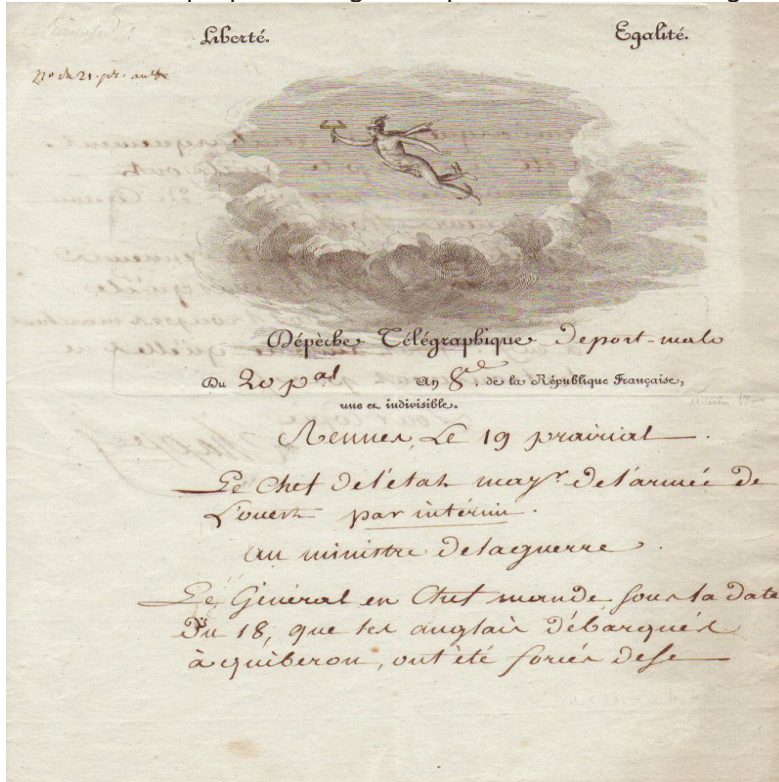 Liberté. Egalité.
Dépêche Télégraphique de port-malo
Du 20 p.al An 8.e de la République Française,
une et indivisible.
Rennes, Le 19 prairial.
Le Chef de l'état may.r de l'armée de
L'ouest par intérim.
au ministre de la guerre.
Le Général en Chef mande sous la date
Du 18, que les anglais débarqués
à quiberon, ont été forcés de se